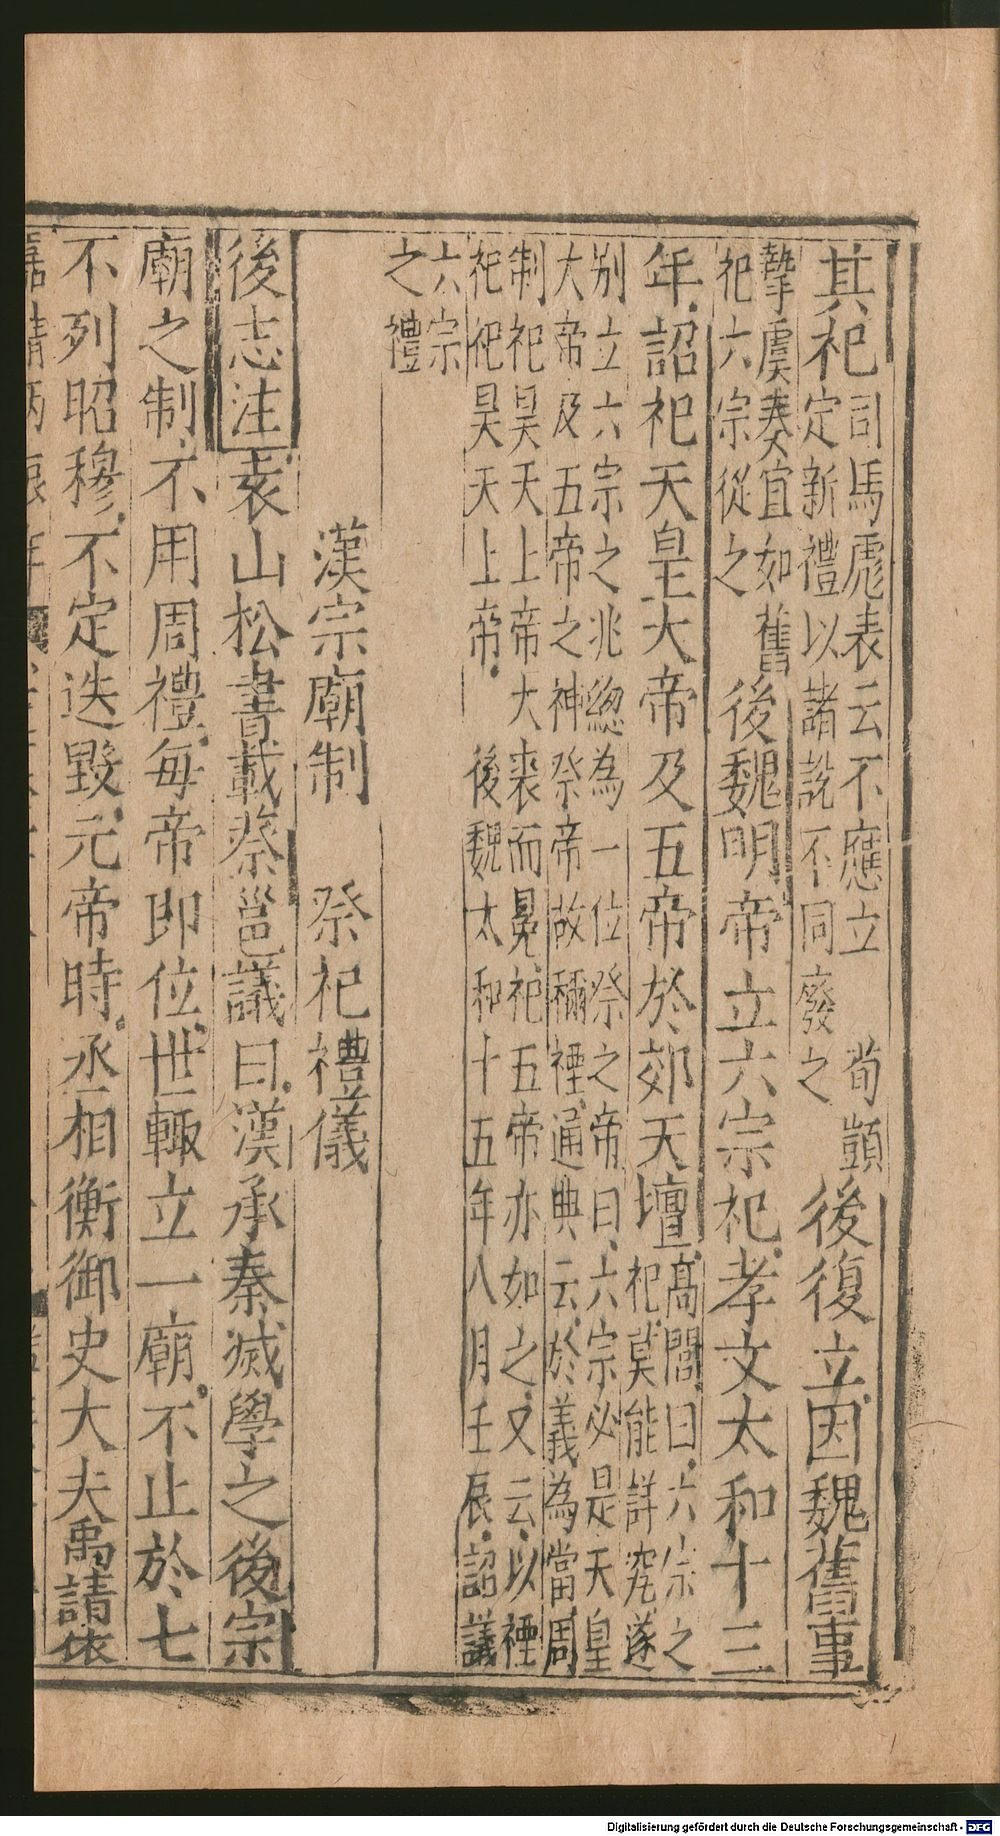 其祀司馬彪表云不應立 荀顗定新禮以諸說不同廢之後復立因魏舊事
摯虞奏宜如舊祀六宗從之後魏明帝立六宗祀孝文太和十三
年詔祀天皇大帝及五帝於郊天壇高閭曰六宗之祀莫能詳究遂
別立六宗之兆緫為一位祭之帝曰六宗必是天皇
大帝及五帝之神祭帝故稱禋通典云於義為當周
制祀昊天上帝大裘而冕祀五帝亦如之又云以禋
祀祀昊天上帝 後魏太和十五年八月壬辰詔議
六宗
之禮
漢宗廟制 祭祀禮儀
後志注袁山松書載蔡邕議曰漢承秦滅學之後宗
廟之制不用周禮每帝即位世輒立一廟不止於七
不列昭穆不定迭毀元帝時丞相衡御史大夫禹請依
Digitalisierung gefördert durch die Deutsche Forschungsgemeinschaft - DFG